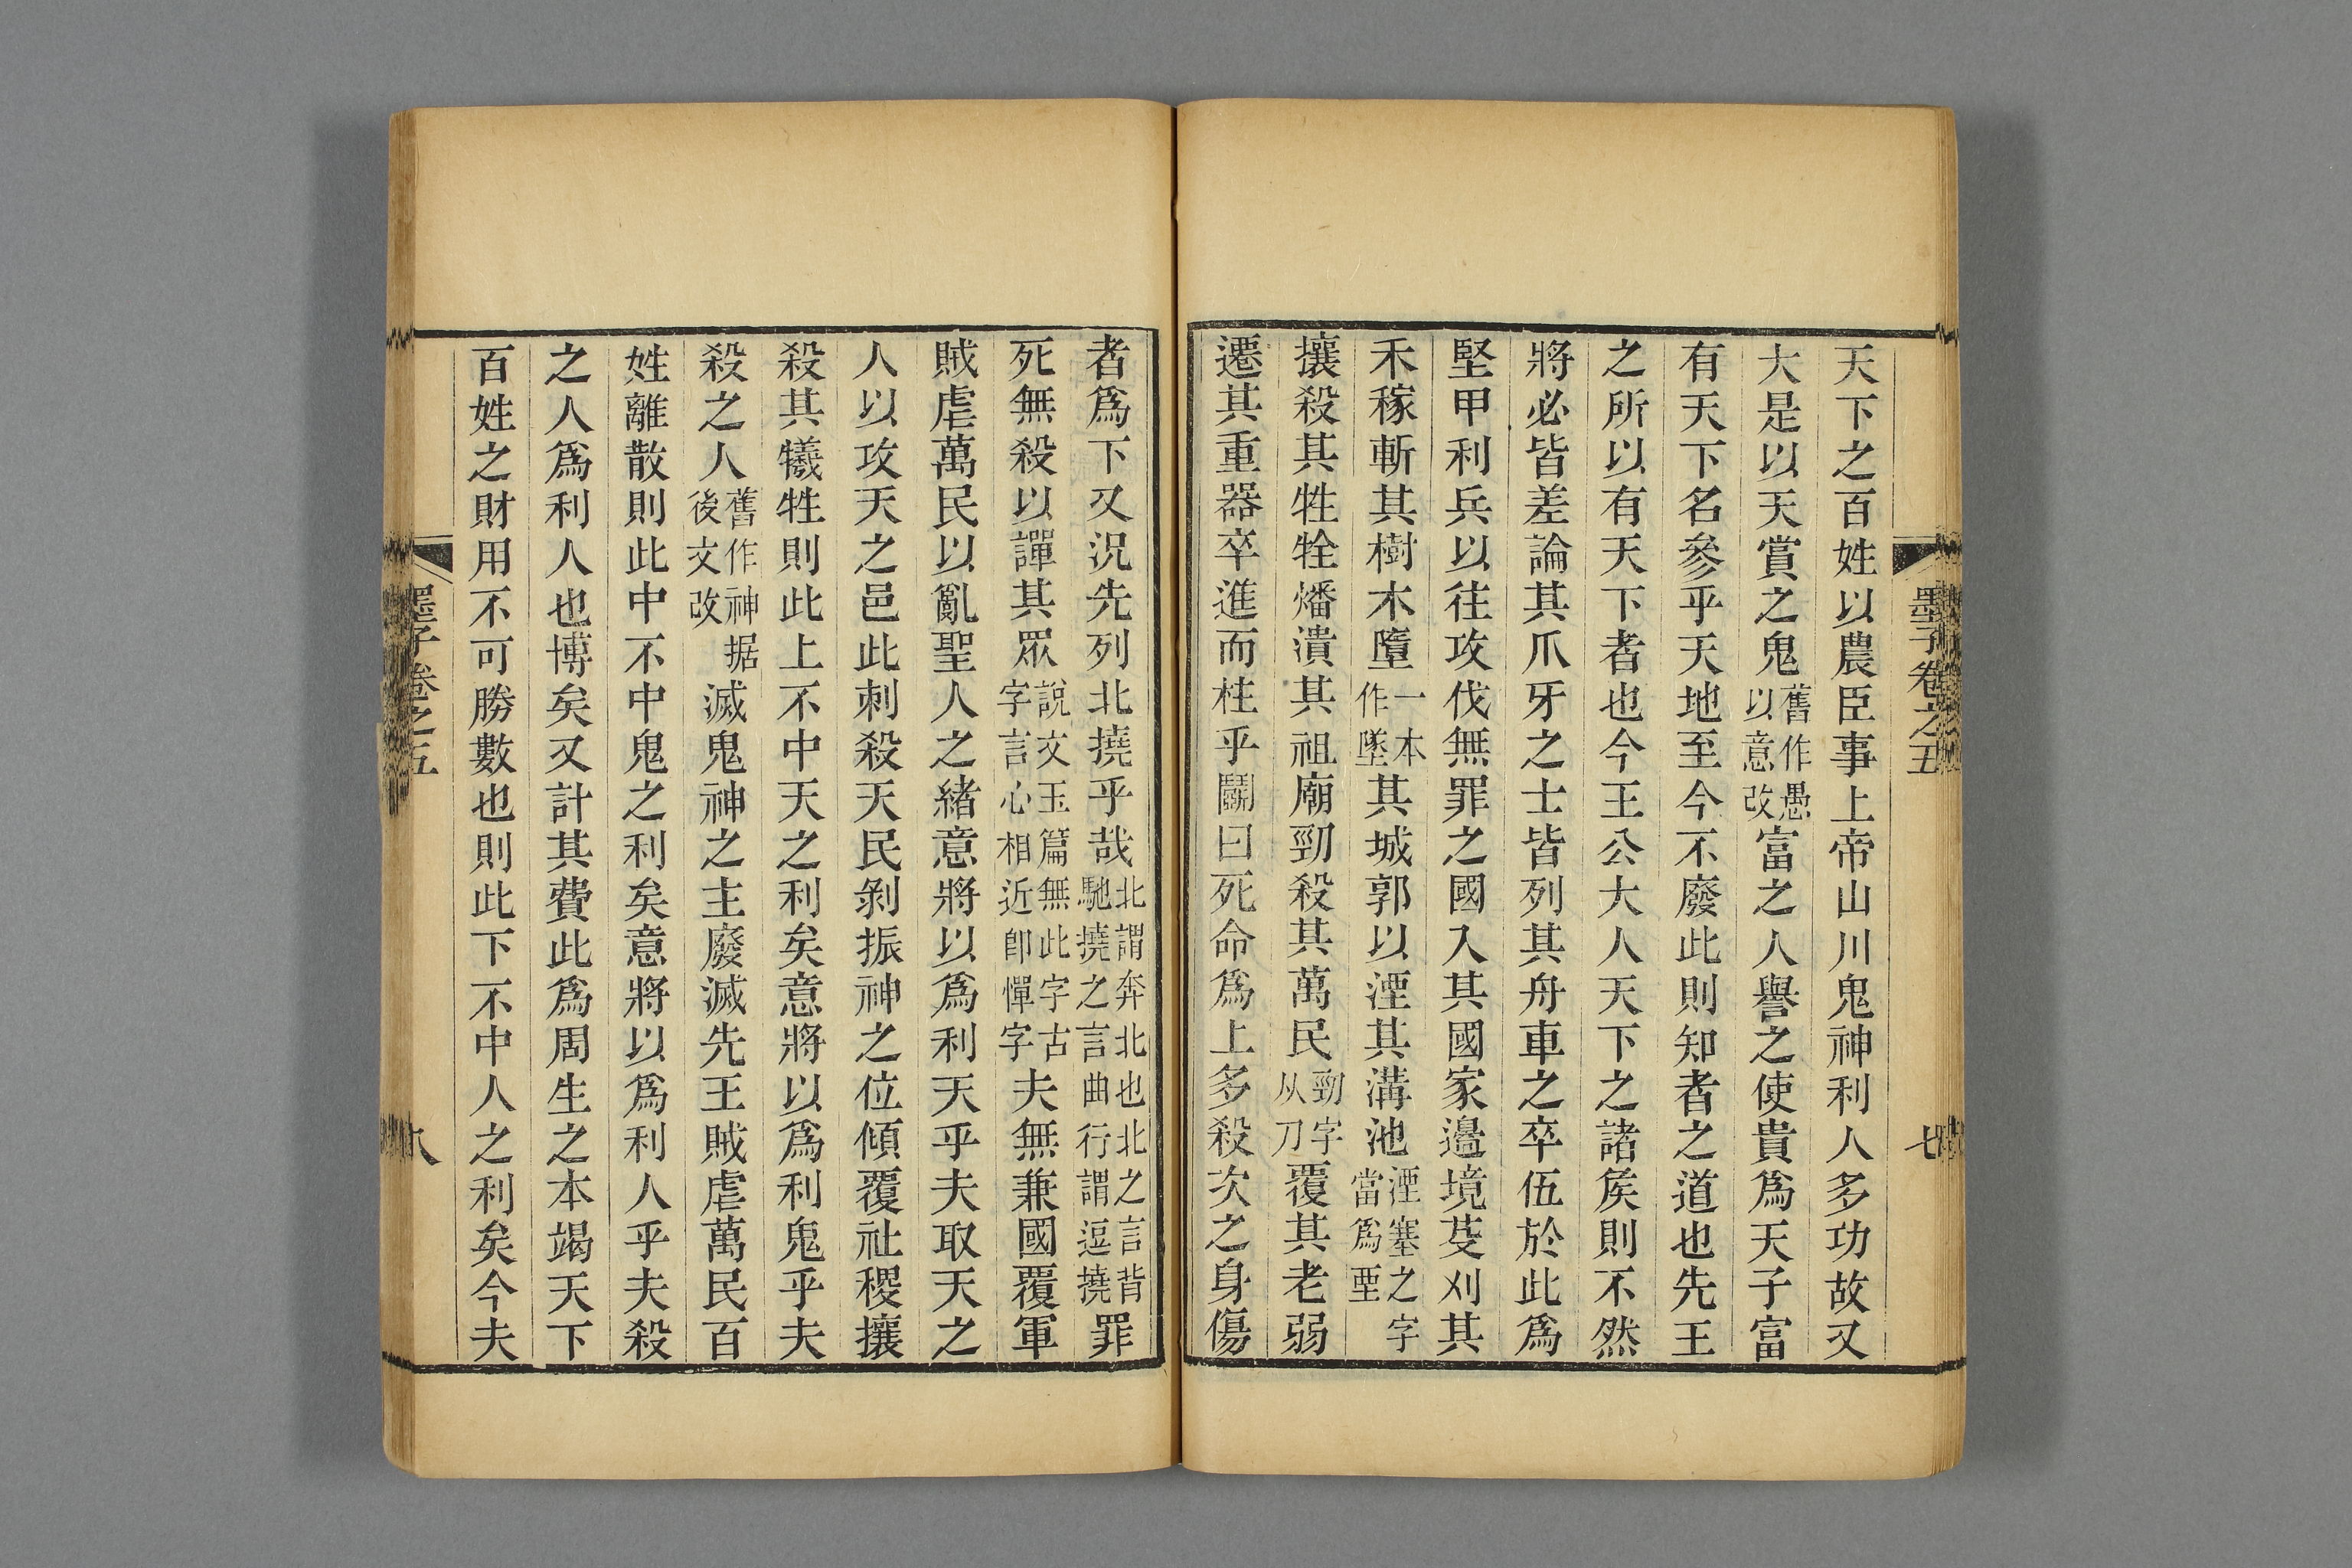 墨子卷之五
七
天下之百姓以農臣事上帝山川鬼神利人多功故又
大是以天賞之鬼舊作愚以意改富之人譽之使貴爲天子富
有天下名參乎天地至今不廢此則知者之道也先王
之所以有天下者也今王公大人天下之諸矦則不然
將必皆差論其爪牙之士皆列其舟車之卒伍於此爲
堅甲利兵以往攻伐無罪之國入其國家邊境芟刈其
禾稼斬其樹木墮一本作墜其城郭以湮其溝池湮塞之字當爲垔
攘殺其牲牷燔潰其祖廟勁殺其萬民勁字从刀覆其老弱
遷其重器卒進而柱乎鬬曰死命爲上多殺次之身傷
者爲下又況先列北撓乎哉北謂奔北也北之言背馳撓之言曲行謂逗撓罪
死無殺以譂其眾說文玉篇無此字古字言心相近卽憚字夫無兼國覆軍
賊虐萬民以亂聖人之緒意將以爲利天乎夫取天之
人以攻天之邑此刺殺天民剝振神之位傾覆社稷攘
殺其犧牲則此上不中天之利矣意將以爲利鬼乎夫
殺之人舊作神据後文改滅鬼神之主廢滅先王賊虐萬民百
姓離散則此中不中鬼之利矣意將以爲利人乎夫殺
之人爲利人也博矣又計其費此爲周生之本竭天下
百姓之財用不可勝數也則此下不中人之利矣今夫
墨子卷之五
八